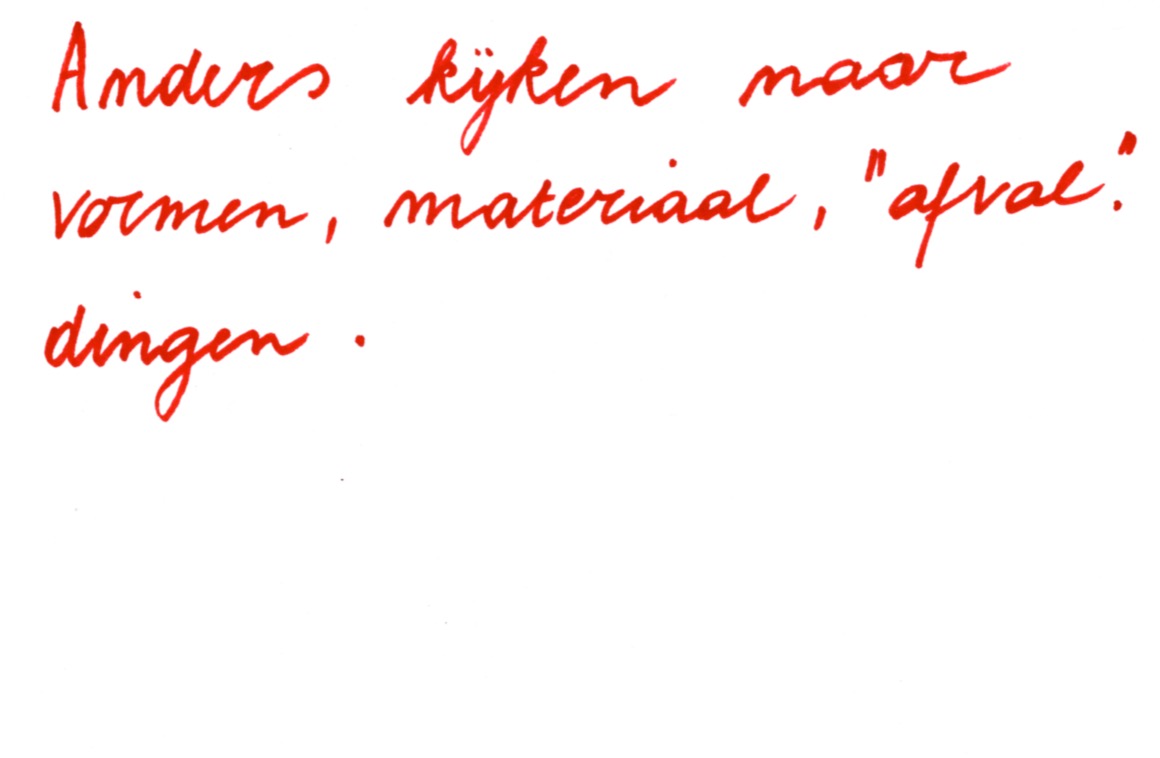 Anders kijken naar
vormen, materiaal, "afval".
dingen.